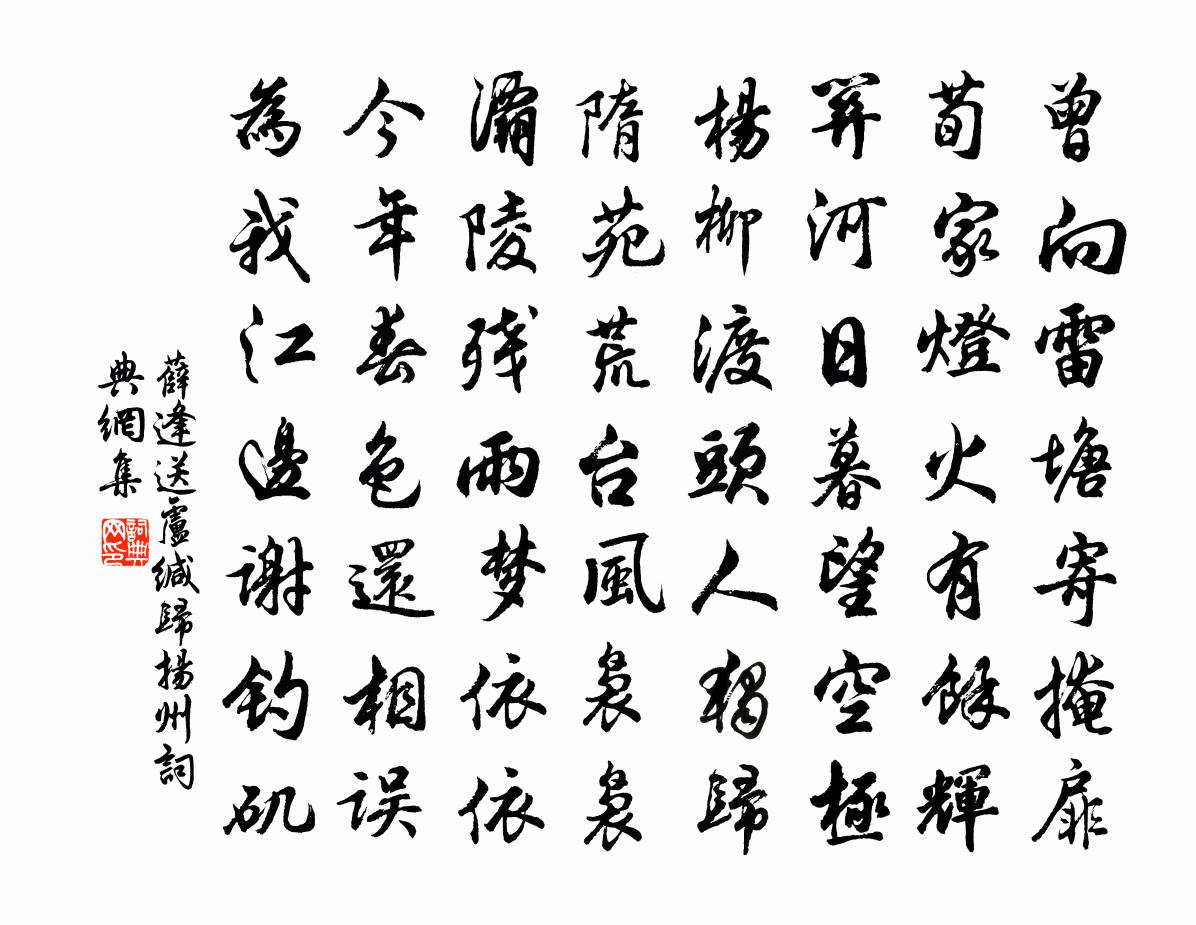 曾向雷塘寄掩扉
荀家燈火有餘輝
關河日暮望空極
楊柳渡頭人獨歸
隋苑荒台風裊裊
灞陵残雨梦依依
今年春色還相误
為我江邊謝釣矶
薛逢送盧緘歸揚州詞
典網集
詞典网印